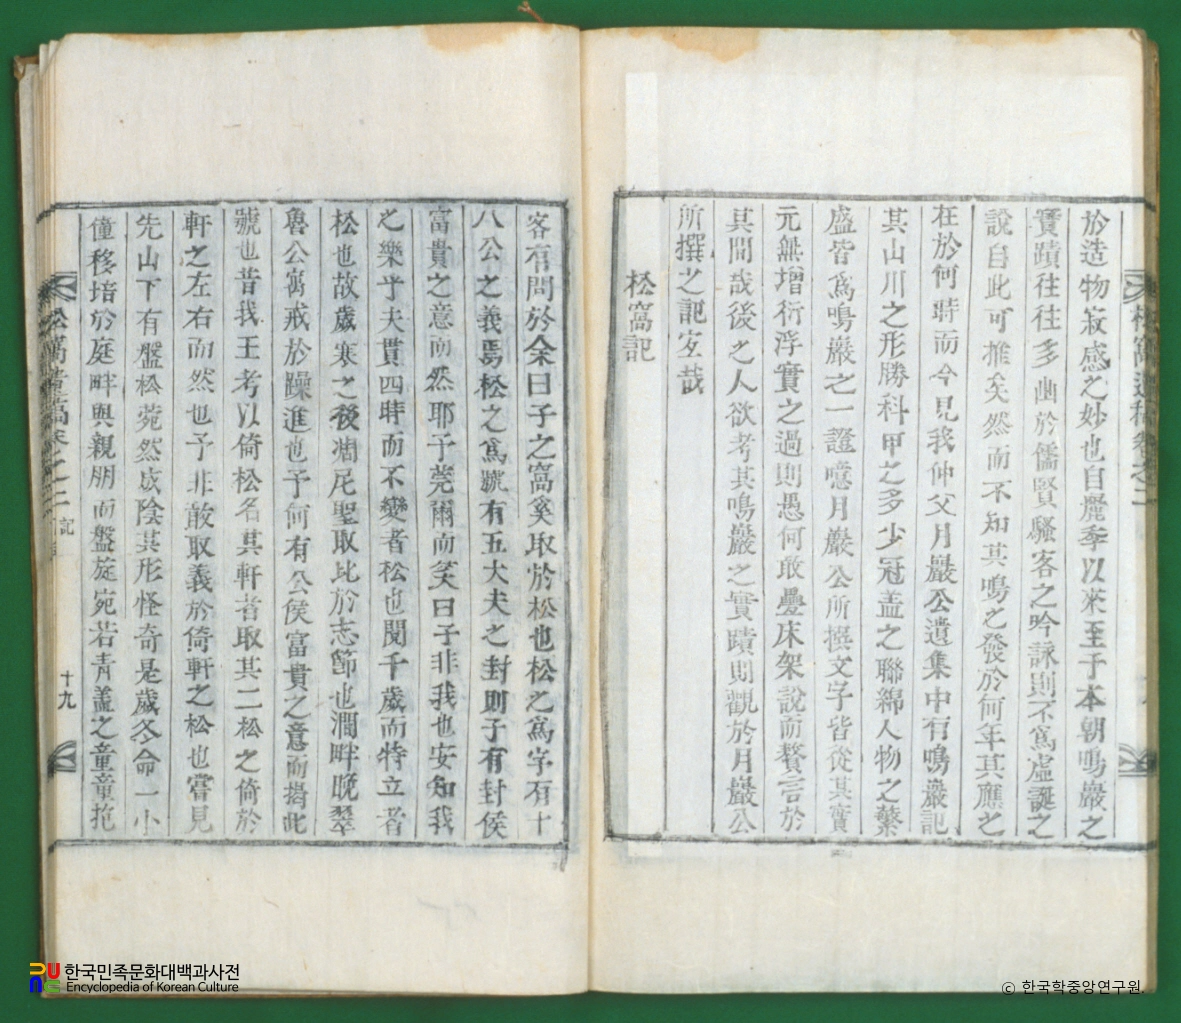 於造物寂感之妙也自麗季以來至于本朝鳴巖之
實蹟往往多幽於儒賢騷客之吟詠則不爲虛誕之
說自此可推矣然而不知其鳴之發於何年其應之
在於何時而今見我仲父月巖公遺集中有鳴巖記
其山川之形勝科甲之多少冠盖之聯綿人物之繁
盛皆爲鳴巖之一證噫月巖公所撰文字皆從其實
元無增衍浮實之過則愚何敢疊床架說而贅言於
其間哉後之人欲考其鳴巖之實蹟則觀於月巖公
所撰之記宜哉
松窩記
客有問於余曰子之窩奚取於松也松之爲字有十
八公之義焉松之爲號有五大夫之封則子有封侯
富貴之意而然耶予莞爾而笑曰子非我也安知我
之樂乎夫貫四時而不變者松也閱千歲而特立者
松也故歲寒之後凋尼聖取比於志節也澗畔晚翠
魯公寓戒於躁進也予何有公侯富貴之意而揭此
號也昔我王考以倚松名其軒者取其二松之倚於
軒之左右而然也予非敢取義於倚軒之松也嘗見
先山下有盤松菀然成陰其形怪奇是歲冬命一小
僮移培於庭畔與親朋而盤旋宛若青盖之童童拖
松窩遺稿卷之二 記 十九
한국민족문화대백과사전
Encyclopedia of Korean Culture
ⓒ 한국학중앙연구원.